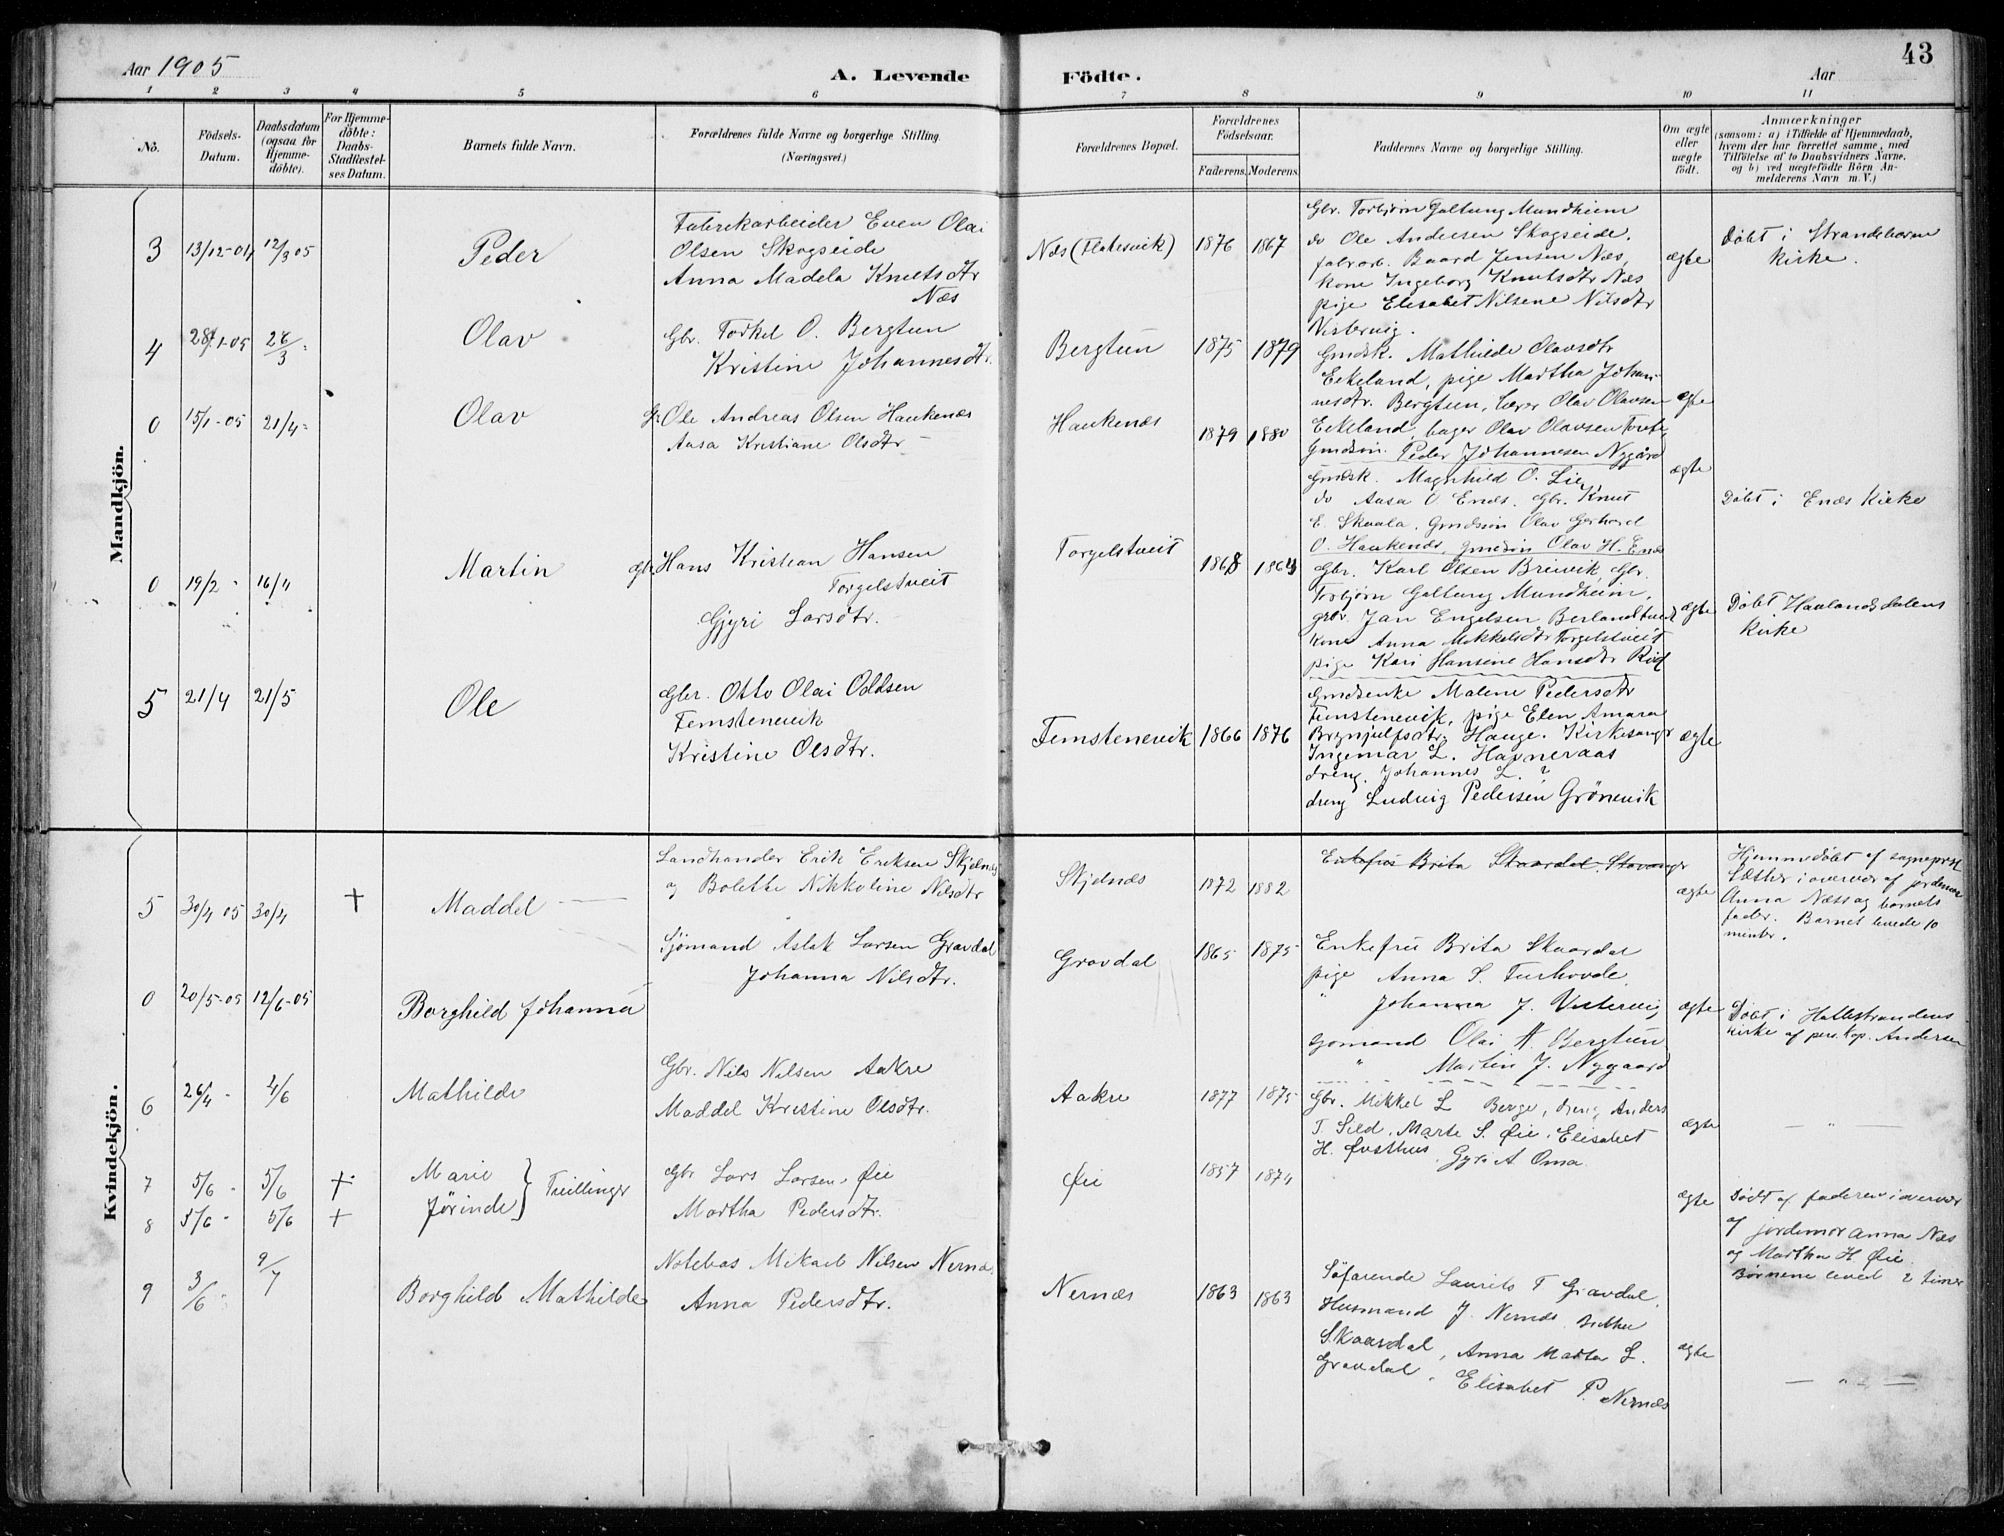 43
Aar 1905
A. Levende
Födte.
Aar
1 2 3 4 5 6 7 8 9 10 11
No.
Födsels-Datum.
Daabsdatum (ogsaa for Hjemmedöbte).
For Hjemmedöbte: Daabs-Stadfæstelses Datum.
Barnets fulde Navn.
Forældrenes fulde Navne og borgerlige Stilling.
(Næringsvei.)
Forældrenes Bopæl.
Forældrenes Födselsaar.
Faderens. Moderens.
Faddernes Navne og borgerlige Stilling.
Om ægte eller uægte födt.
Anmærkninger
(saasom: a) i Tilfælde af Hjemmedaab,
hvem der har forrettet samme, med
Tilföielse af to Daabsvidners Navne,
og b) ved uægtefödte Börn An-
melderens Navn m. V.)
Mandkjön.
3 13/12-04 12/3 05 Peder
Fabrikarbeider Even Olai
Olsen Skogseide
Anna Madela Knutsdtr
Næs
Næs (Flatesvik) 1876 1867
Gbr. Torbjørn Galtung Mundheim
do Ole Andersen Skogseide,
fabrarb. Baard Jensen Næs,
kone Ingeborg Knutsdtr Næs
pige Elisabet Nilsene Nilsdtr
ægte
Døbt i Strandebarm
Kirke.
4 28/1-05 26/3 Olav
Gbr. Torkel O. Bergtun
Kristine Johannesdtr.
Bergtun 1875 1879
Gmdsk. Mathilde Olavsdtr
Eikeland, pige Martha Johan-
nesdtr. Bergtun, lærer Olav Olavsen
Eikeland, bager Olav Olavsen
Gmdsøn. Peder Johannesen Nygård
ægte
0 15/1-05 21/4 Olav
Ole Andreas Olsen Haukenæs
Aasa Kristiane Olsdtr
Haukenæs 1879 1880
Gmdsk. Magnhild O. Lie,
do Aasa O Enæs. Gbr. Knut
E. Skaala, Gmdssøn Olav Gerhard
O. Haukenæs, gmdsøn Olav H. Enæs
ægte
Døbt i Enæs Kirke
0 19/2 16/4 Martin
Gbr Hans Kristian Hansen
Torgelstveit
Gjyri Larsdtr.
Torgelstveit 1868
Gbr. Karl Olsen Breivik, Gbr.
Torbjørn Galtung Mundheim,
gbr Jan Engelsen Berlandtveit
kone Anna Mikkelsdtr Torgelstveit
pige Kari Hansine Hansdtr
ægte
Døbt Haalandsdalens
Kirke
5 21/4 21/5 Ole
Gbr. Otto Olai Oddsen
Femstenevik
Kristine Olsdtr.
Femstenevik 1866 1876
Gmdsenke Malene Pedersdtr
Femstenevik, pige Elen Amara
Brynjulfsdtr. Hauge. Kirkesangr
Ingemar L. Havneraas
dreng. Johannes L. ?
dreng Ludvig Pedersen Grönevik
ægte
Kvindekjön.
5 30/4 05 30/4 + Maddel
Landhandler Erik Eriksen Skjelnæs
og Bolette Nikkoline Nilsdtr
Skjelnæs 1872 1882
Brita Skaardal Stavanger
ægte
Hjemmedøbt af sogneprst
Sæther i overvær af jordemor
Anna Næss og barnets
fader. Barnet levede 10
minter.
0 20/5-05 12/6-05 Borghild Johanna
Sjømand Aslak Larsen Gravdal
Johanna Nilsdtr.
Gravdal 1865 1875
Enkefru Brita Skaardal
pige Anna S. Furhovde,
" Johanna J. Vestervig
gomand Olai A. Bergtun
" Martin J. Nygaard
ægte
Døbt i Hatlestrandens
kirke af pers.kap. Andersen
6 26/4 4/6 Mathilde
Gbr. Nils Nilsen Aakre
Maddel Kristine Olsdtr.
Aakre 1877 1875
Gbr. Mikkel L Berge, dreng Anders
T. Sild, Marte S. Øie, Elisabet
H. Øvsthus, Gyri A Oma
ægte
— " —
7 5/6 5/6 + Marie
8 5/6 5/6 + Jørinde } Tvillinger
Gbr Lars Larsen Øie
Martha Pedersdtr.
Øie 1857 1874
ægte
Døbt af faderen i overvær
af jordemor Anna Næs
og Martha H Øie.
Børnene leved 2 timer
9 3/6 9/7 Borghild Mathilde
Notebas Mikael Nilsen Nernæs
Anna Pedersdtr.
Nernæs 1863 1863
Søfarende Laurits T Gravdal,
Husmand J. Nernæs,
Skaardal, Anna Marta L.
Gravdal, Elisabet P. Nernæs
ægte
— " —